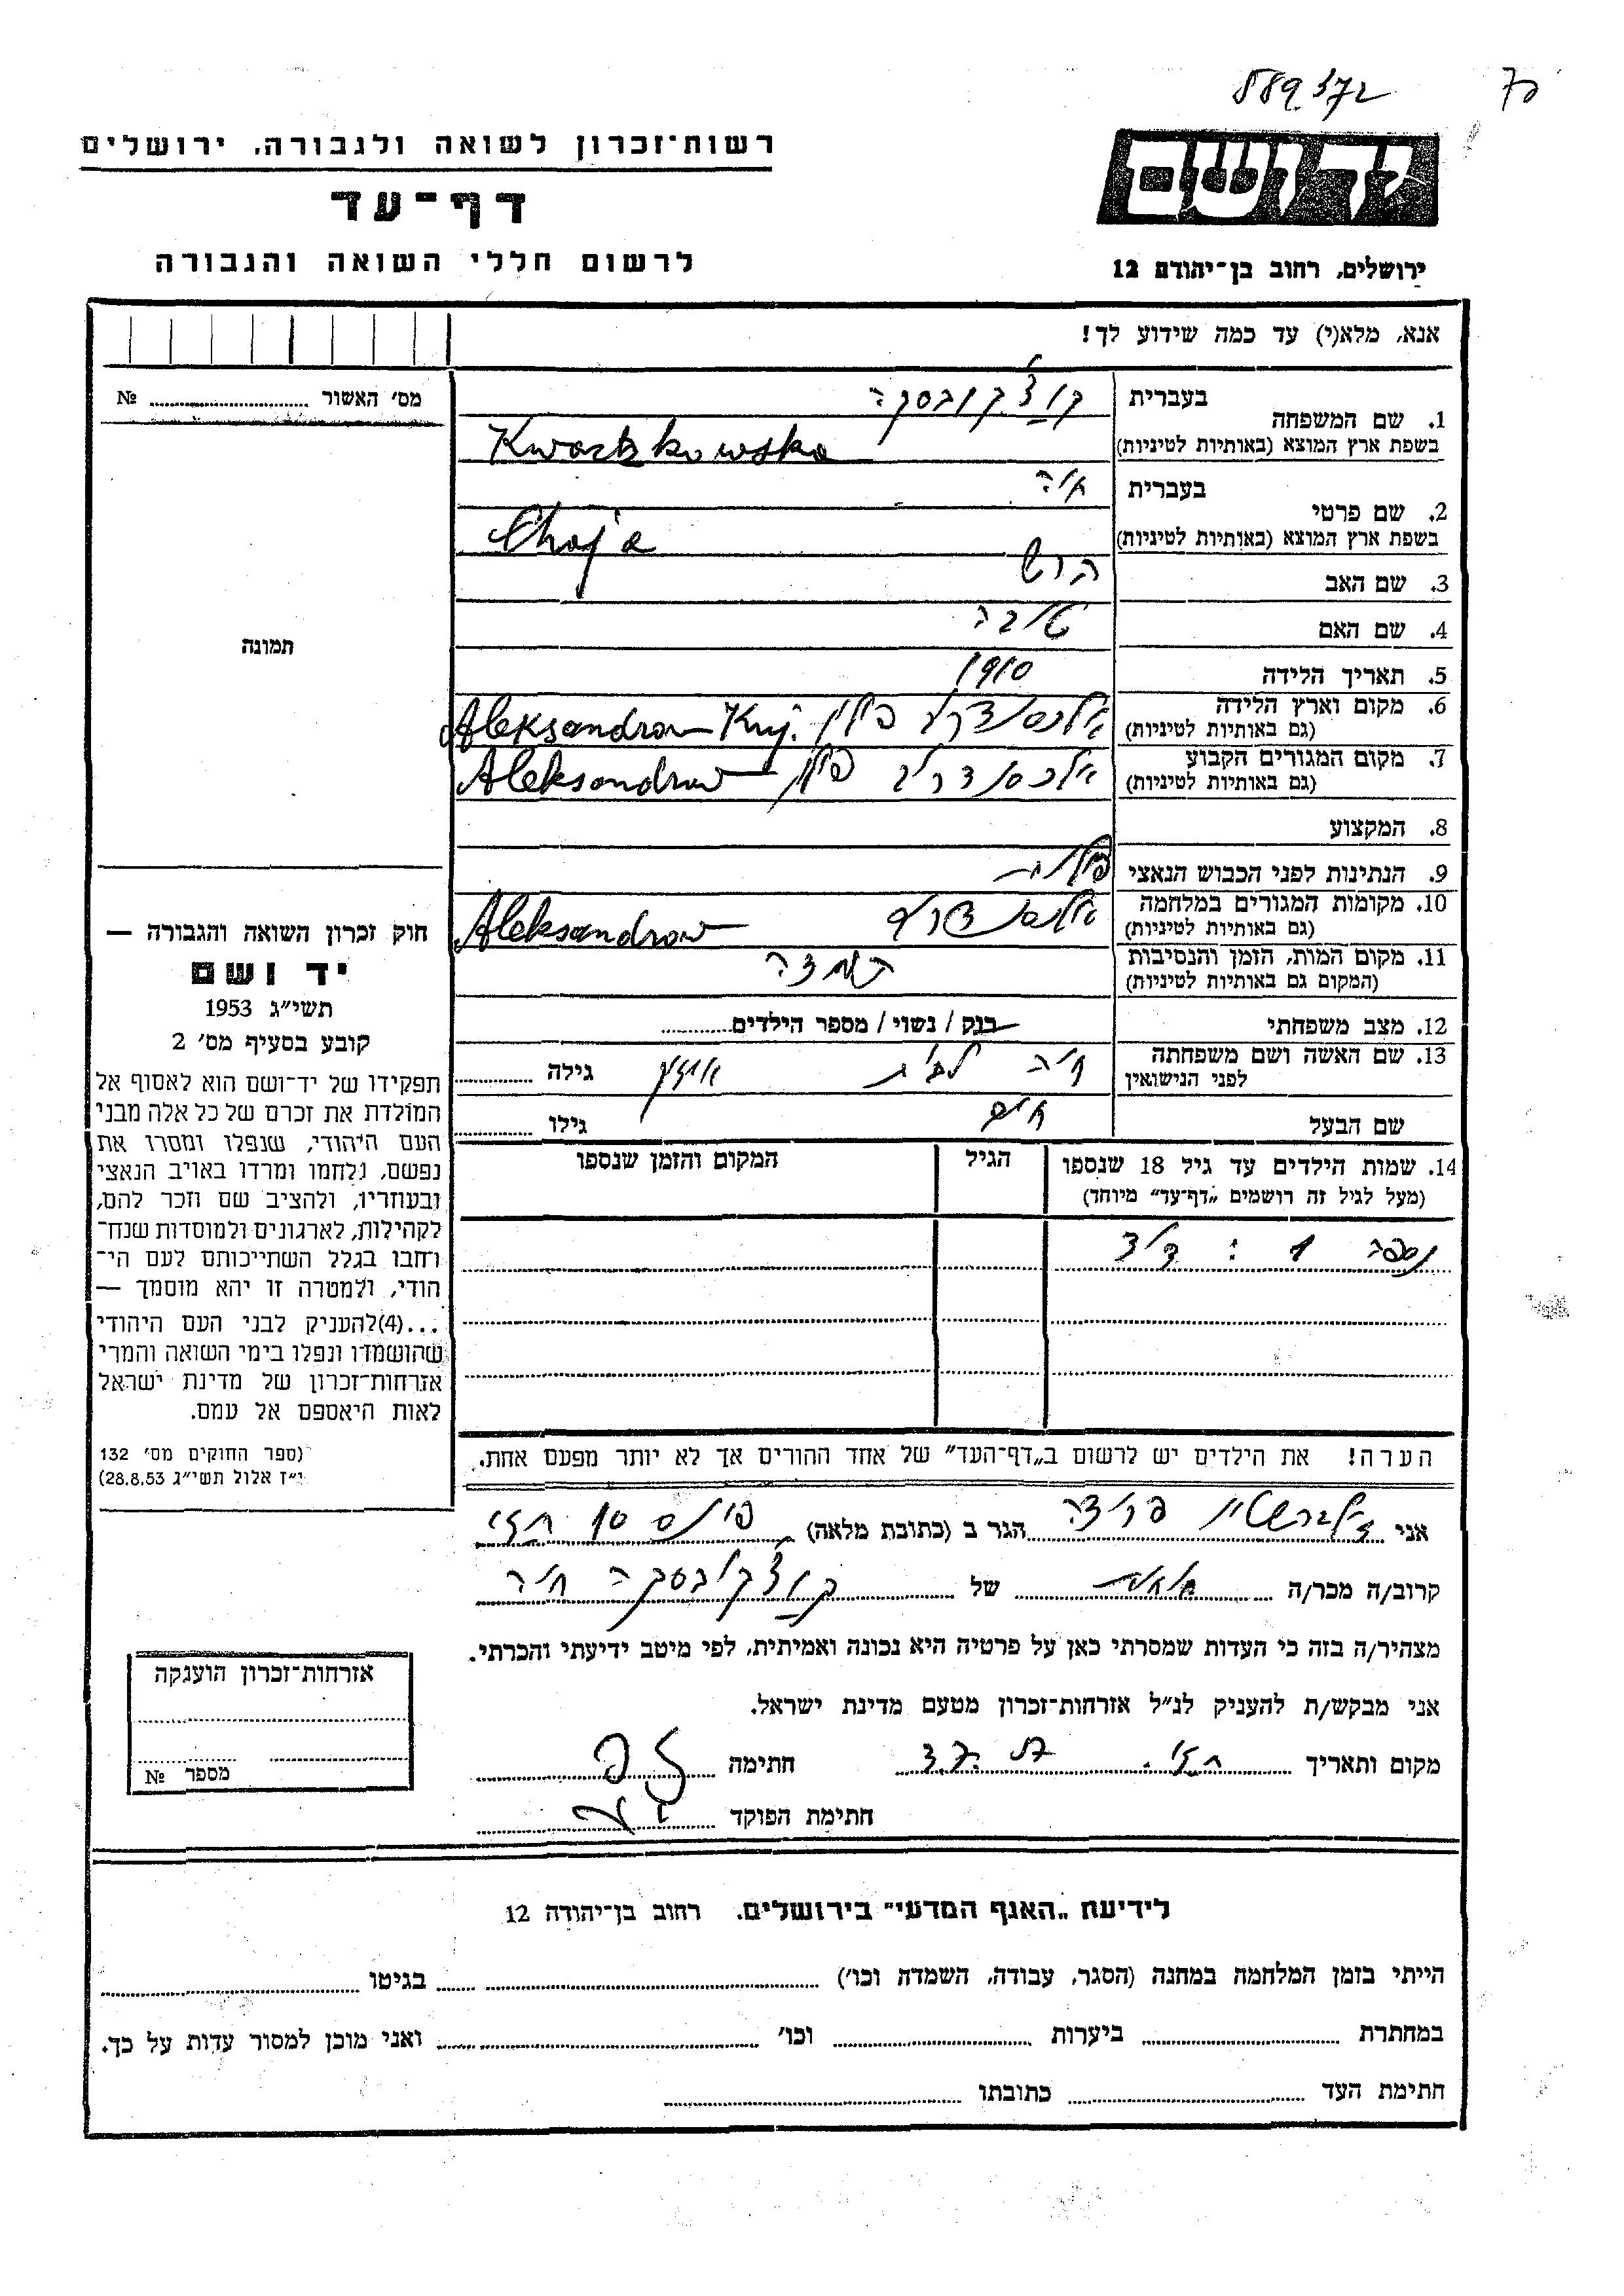 889372 כד
ידושם
רשות־זכרון לשואה ולגבורה, ירושלים
דף־עד
לרשום חללי השואה והגבורה
ירושלים, רחוב בן־יהודה 12
אנא, מלא(י) עד כמה שידוע לך!
מס׳ האשור № 
תמונה
1. שם המשפחה
בעברית קוצקובסקה
בשפת ארץ המוצא (באותיות לטיניות) Kwaczkowska
2. שם פרטי
בעברית חיה
בשפת ארץ המוצא (באותיות לטיניות) Chaja
3. שם האב הרש
4. שם האם
5. תאריך הלידה 1910
6. מקום וארץ הלידה
(גם באותיות לטיניות) אלכסנדרוב פולין Aleksandrow Kuj.
7. מקום המגורים הקבוע
(גם באותיות לטיניות) אלכסנדרוב פולין Aleksandrow
8. המקצוע
9. הנתינות לפני הכבוש הנאצי פולנית
10. מקומות המגורים במלחמה
(גם באותיות לטיניות) אלכסנדרוב Aleksandrow
11. מקום המות, הזמן והנסיבות
(המקום גם באותיות לטיניות)
12. מצב משפחתי רווק / נשוי / מספר הילדים
13. שם האשה ושם משפחתה
לפני הנישואין חיה לבית גילה
שם הבעל חיים גילו
14. שמות הילדים עד גיל 18 שנספו
(מעל לגיל זה רושמים „דף־עד” מיוחד)
הגיל
המקום והזמן שנספו
נספה 1 : ילד
הערה! את הילדים יש לרשום ב„דף־העד” של אחד ההורים אך לא יותר מפעם אחת.
חוק זכרון השואה והגבורה —
יד ושם
תשי״ג 1953
קובע בסעיף מס׳ 2
תפקידו של יד־ושם הוא לאסוף אל
המולדת את זכרם של כל אלה מבני
העם היהודי, שנפלו ומסרו את
נפשם, נלחמו ומרדו באויב הנאצי
ובעוזריו, ולהציב שם וזכר להם,
לקהילות, לארגונים ולמוסדות שנח־
רחבו בגלל השתייכותם לעם הי־
הודי, ולמטרה זו יהא מוסמך —
...(4)להעניק לבני העם היהודי
שהושמדו ונפלו בימי השואה והמרי
אזרחות־זכרון של מדינת ישראל
לאות היאספם אל עמם.
(ספר החוקים מס׳ 132
י״ז אלול תשי״ג 28.8.53)
אני זילברשטיין הגר ב (כתובת מלאה) 10
קרוב/ה מכר/ה של קוצקובסקה חיה
מצהיר/ה בזה כי העדות שמסרתי כאן על פרטיה היא נכונה ואמיתית, לפי מיטב ידיעתי והכרתי.
אני מבקש/ת להעניק לנ״ל אזרחות־זכרון מטעם מדינת ישראל.
מקום ותאריך חתימה
חתימת הפוקד
אזרחות־זכרון הוענקה
מספר №
לידיעת „האגף המדעי” בירושלים. רחוב בן־יהודה 12
הייתי בזמן המלחמה במחנה (הסגר, עבודה, השמדה וכו׳) בגיטו
במחתרת ביערות וכו׳ ואני מוכן למסור עדות על כך.
חתימת העד כתובתו